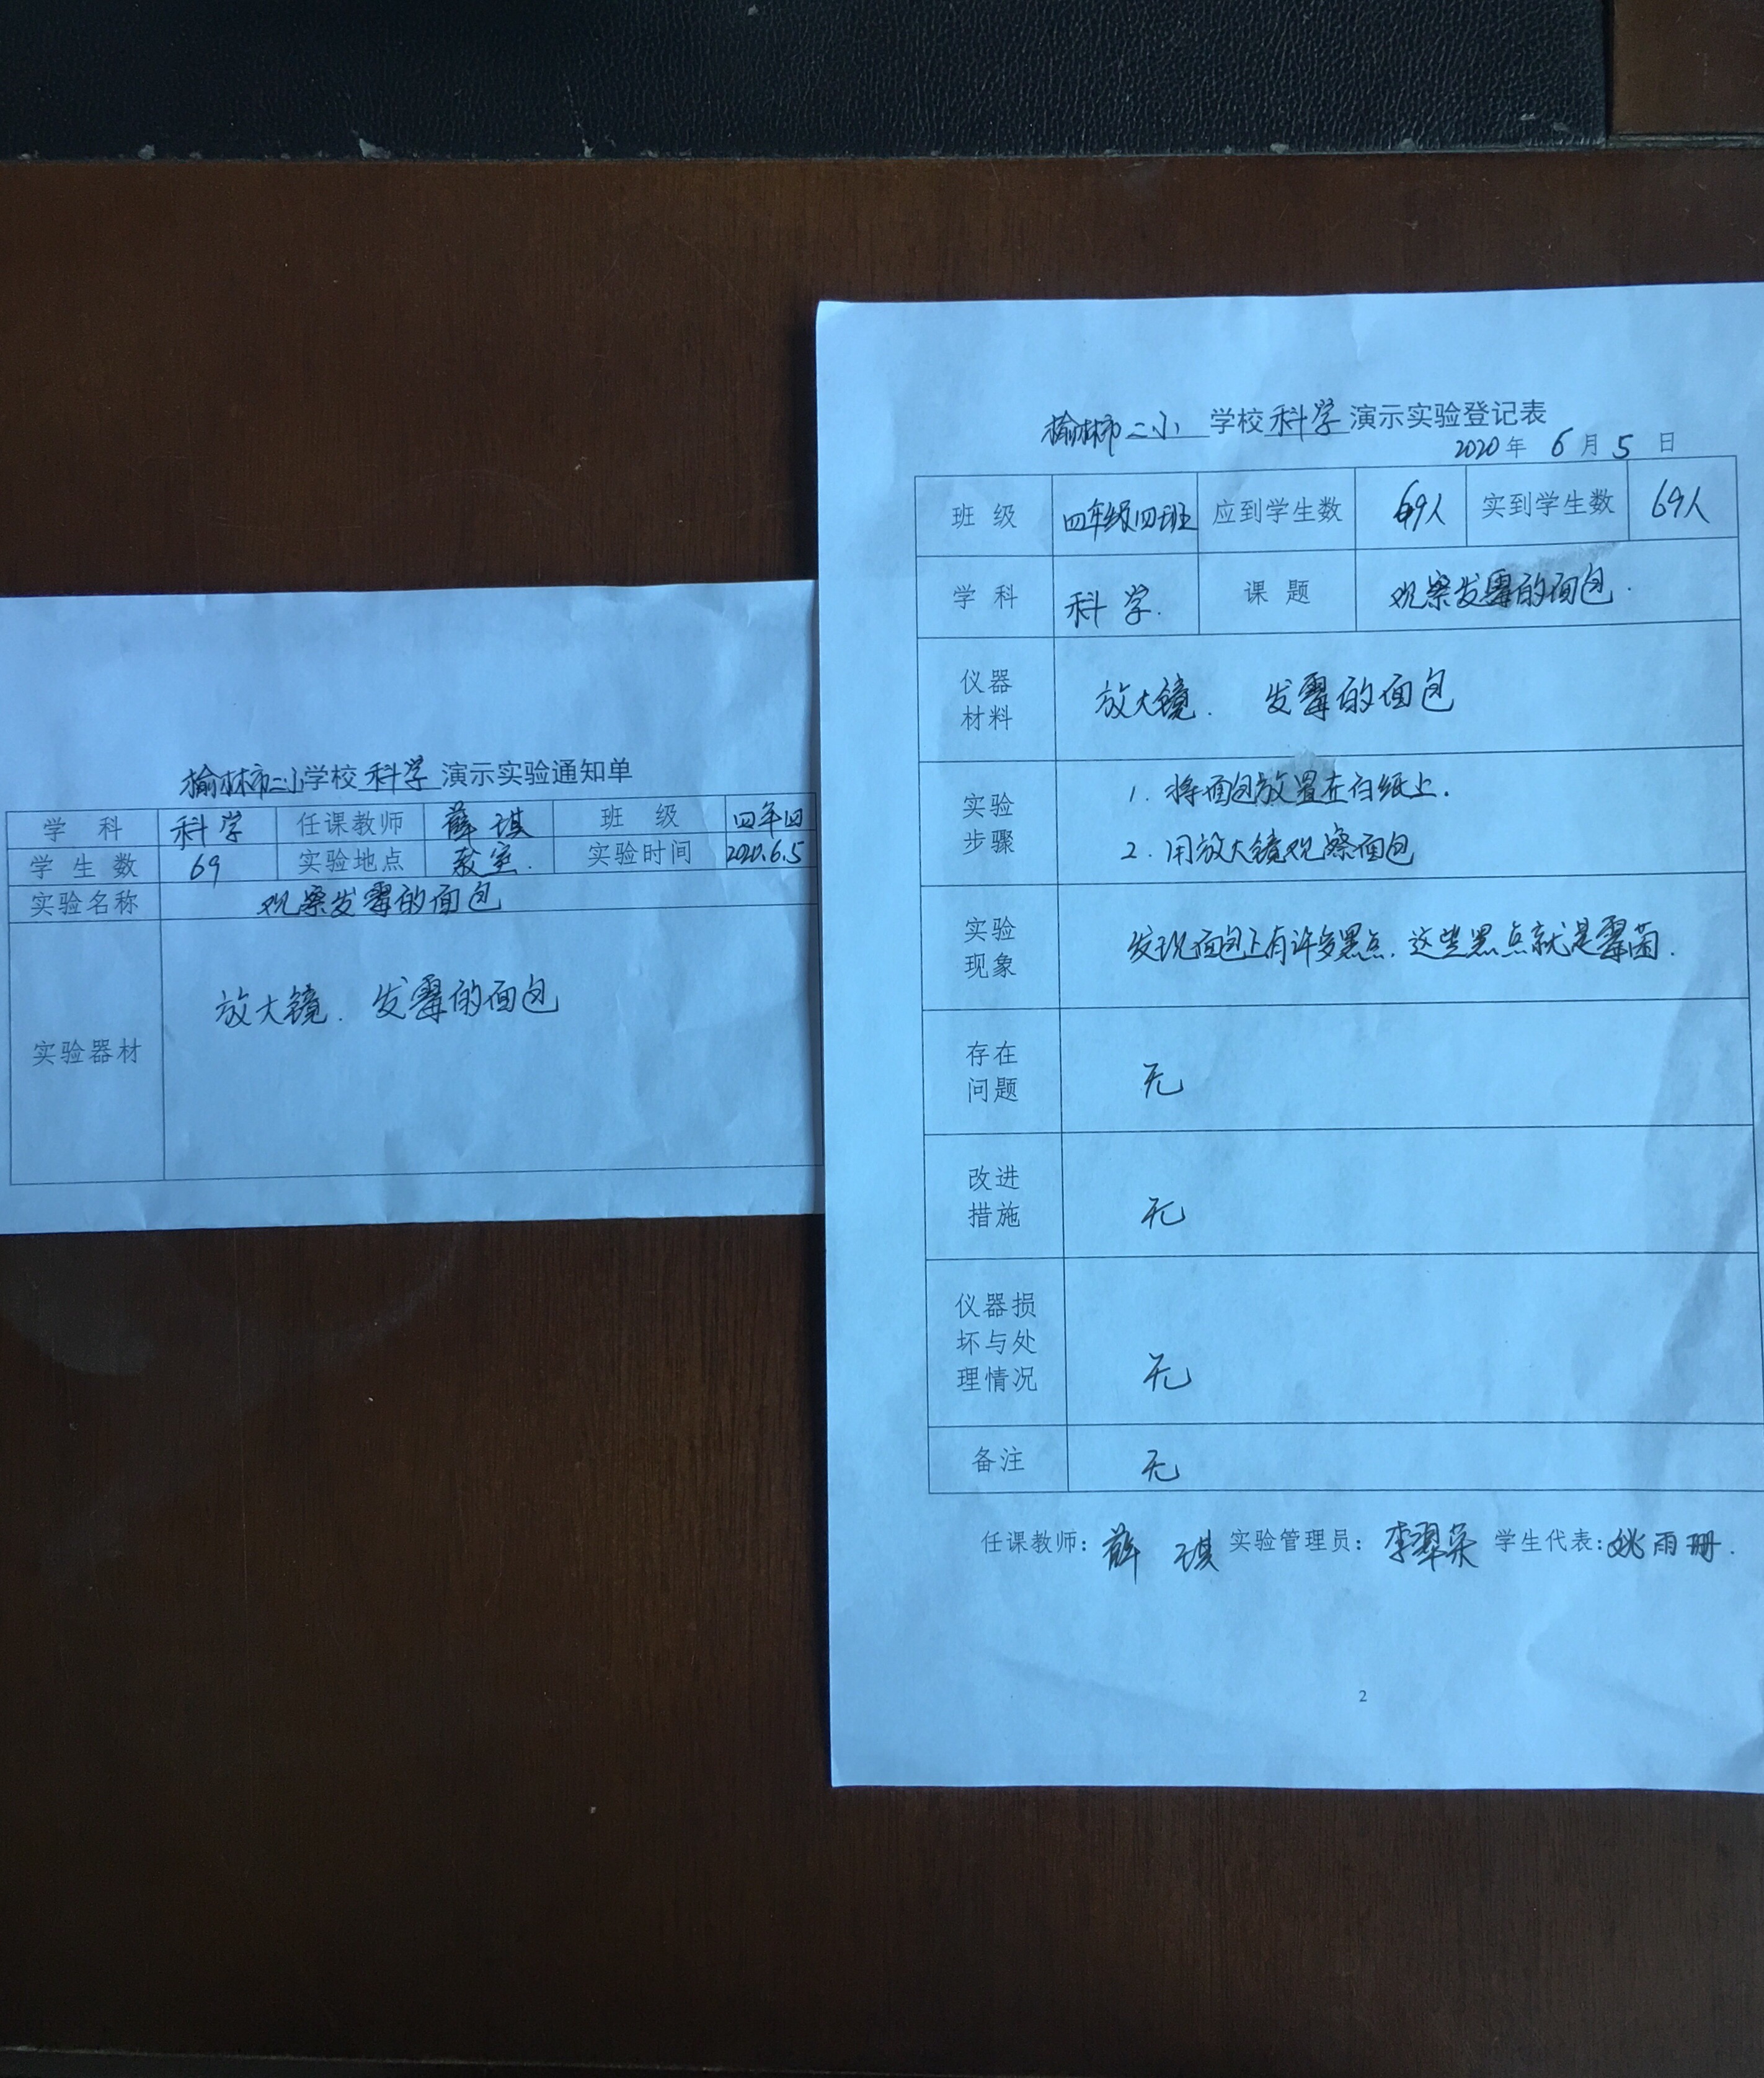 榆林市二小学校科学演示实验通知单
学科 科学 任课教师 薛琪 班级 四年四
学生数 69 实验地点 教室. 实验时间 2020.6.5
实验名称 观察发霉的面包
实验器材 放大镜. 发霉的面包
榆林市二小 学校科学演示实验登记表
2020年 6月5日
班级 四年级四班 应到学生数 69人 实到学生数 69人
学科 科学. 课题 观察发霉的面包.
仪器材料 放大镜. 发霉的面包
实验步骤 1. 将面包放置在白纸上.
2. 用放大镜观察面包
实验现象 发现面包上有许多黑点. 这些黑点就是霉菌.
存在问题 无
改进措施 无
仪器损坏与处理情况 无
备注 无
任课教师: 薛琪 实验管理员: 李翠荣 学生代表: 姚雨珊.
2